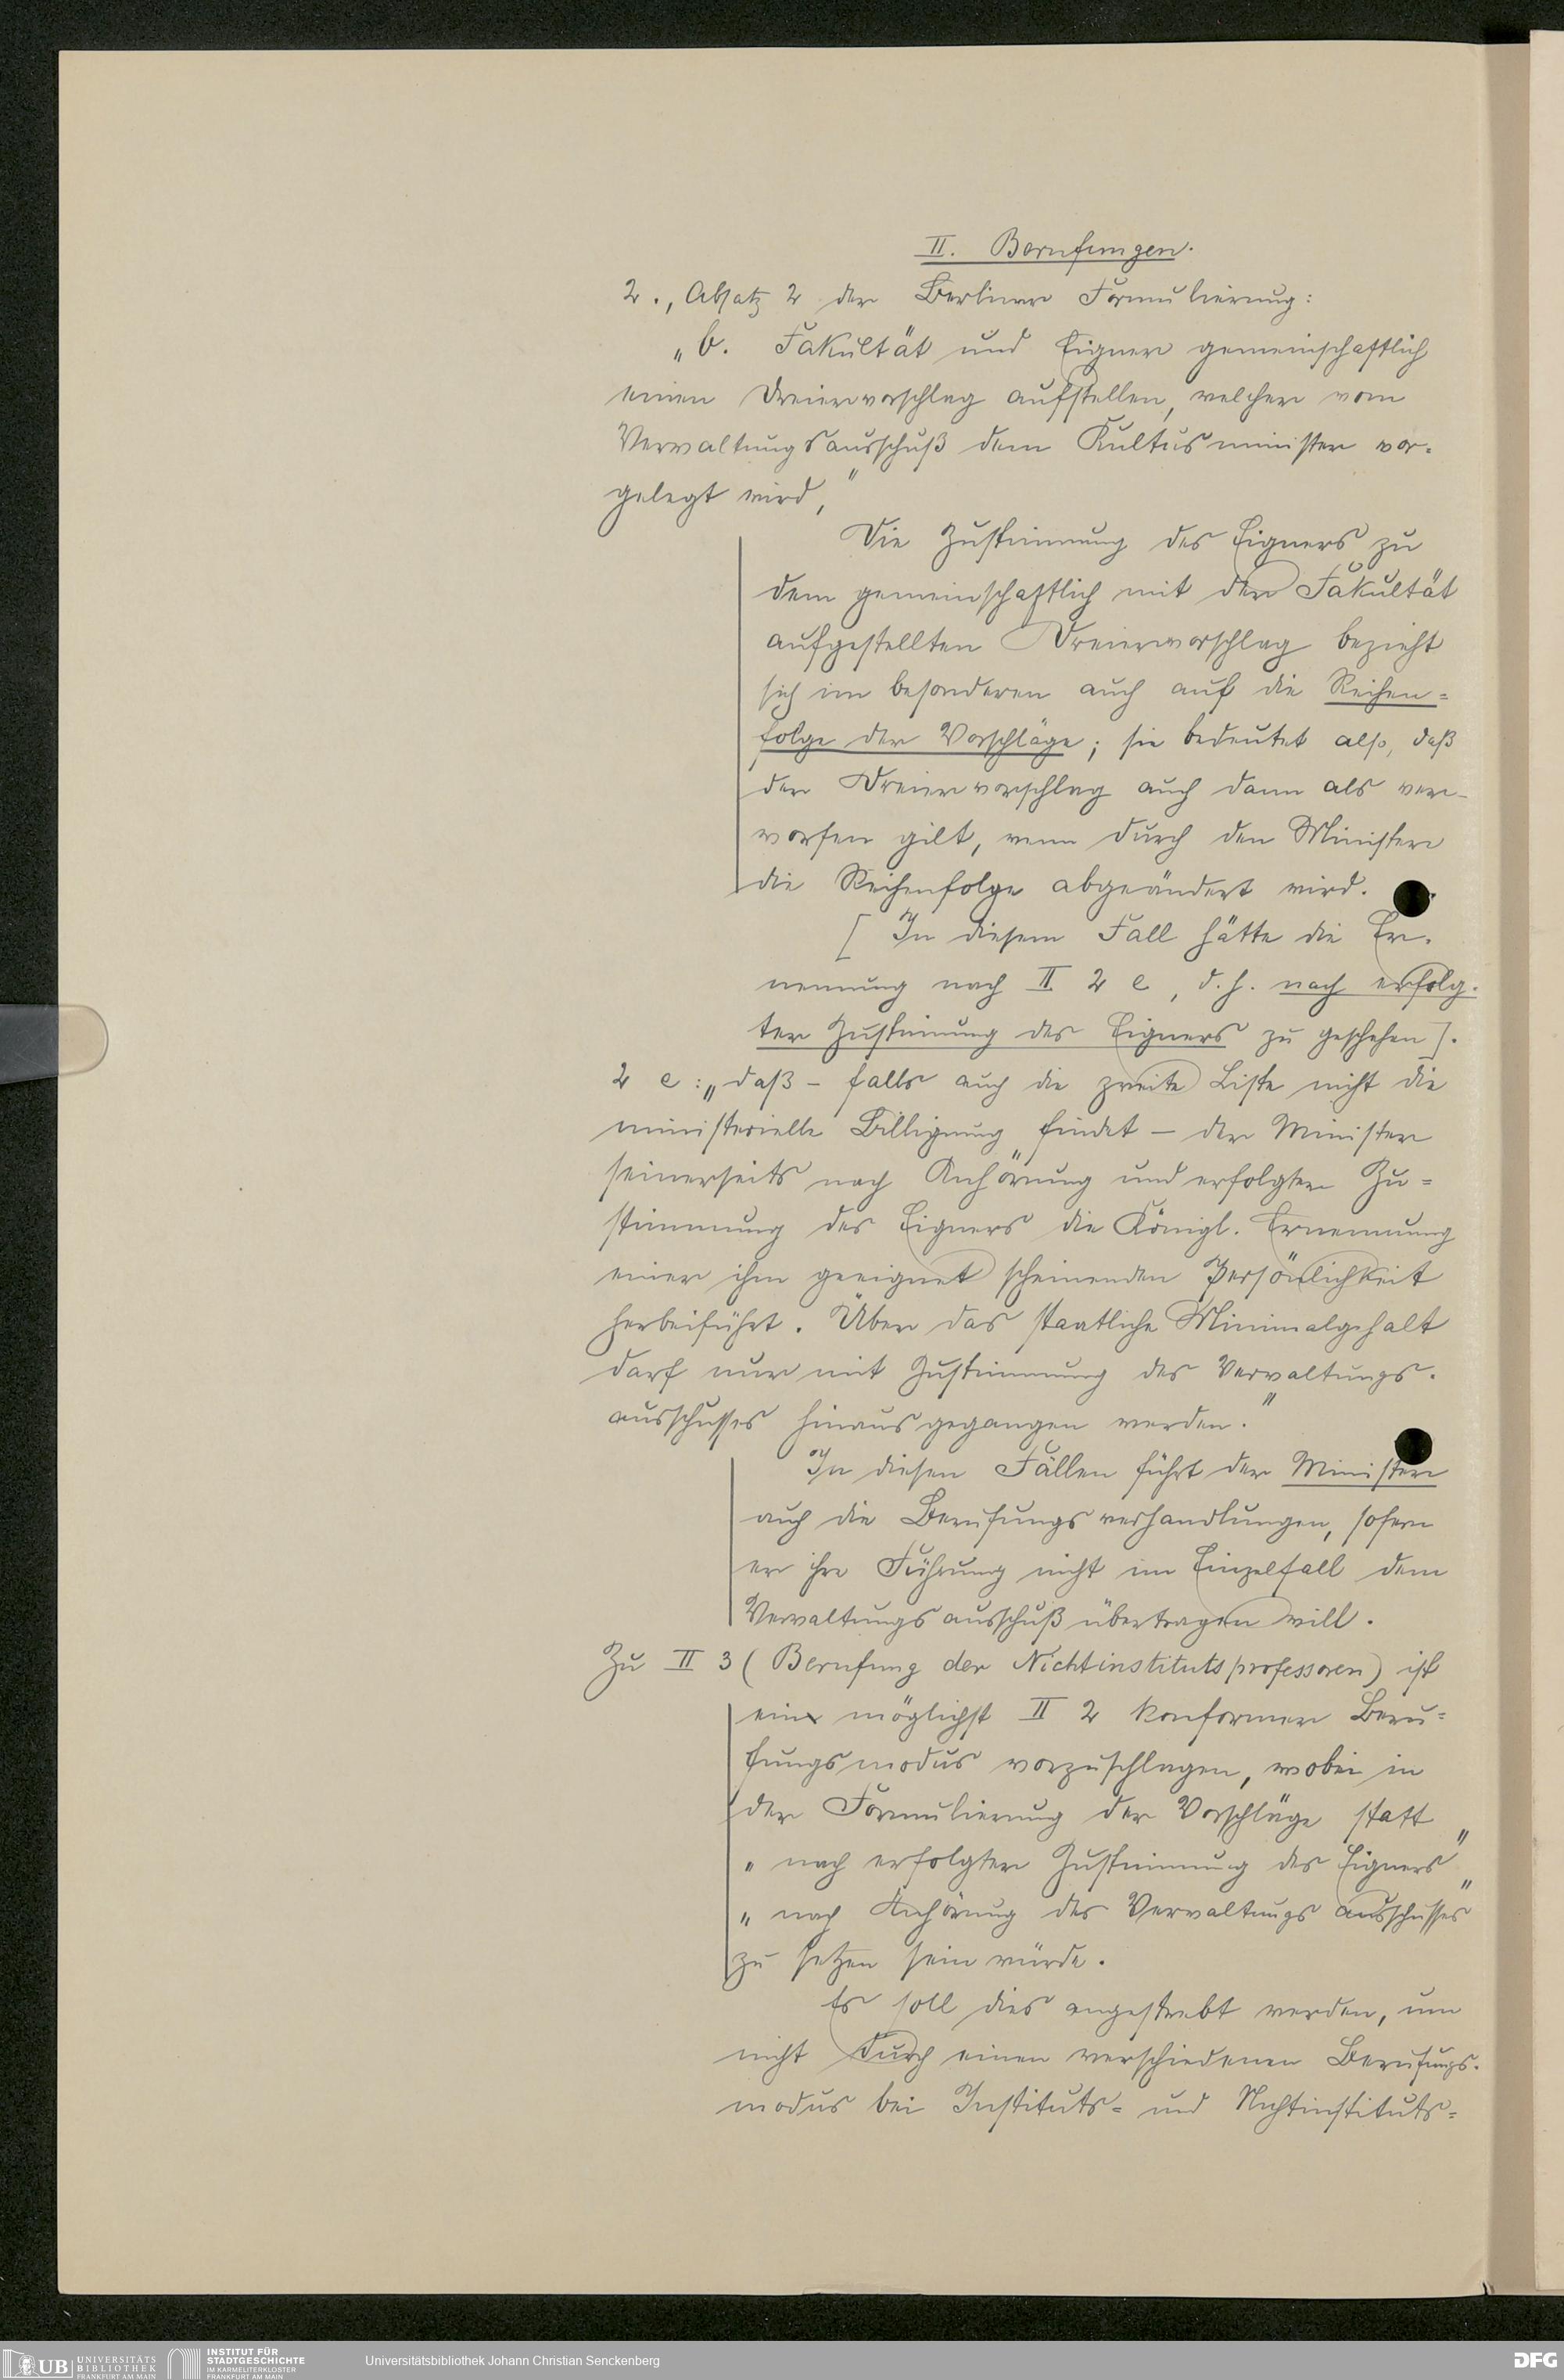 II. Berufungen.
2., Absatz 2 der Berliner Formulierung:
„b. Fakultät und Eigner gemeinschaftlich
einen Dreiervorschlag aufstellen, welcher vom
Verwaltungsausschuß dem Kultusminister vor-
gelegt wird,"
Die Zustimmung des Eigners zu
dem gemeinschaftlich mit der Fakultät
aufgestellten Dreiervorschlag bezieht
sich im besonderen auch auf die Reihen=
folge der Vorschläge; sie bedeutet also, daß
der Dreiervorschlag auch dann als ver-
worfen gilt, wenn durch den Minister
die Reihenfolge abgeändert wird.
[In diesem Fall hätte die Er-
nennung nach II 2 e, d.h. nach erfolg-
ter Zustimmung des Eigners zu geschehen].
2 e: „daß – falls auch die zweite Liste nicht die
ministerielle Billigung findet – der Minister
seinerseits nach Anhörung und erfolgter Zu=
stimmung des Eigners die Königl. Ernennung
einer ihm geeignet scheinenden Persönlichkeit
herbeiführt. Über das staatliche Minimalgehalt
darf nur mit Zustimmung des Verwaltungs-
ausschusses hinausgegangen werden."
In diesen Fällen führt der Minister
auch die Berufungsverhandlungen, sofern
er ihre Führung nicht im Einzelfall dem
Verwaltungsausschuß übertragen will.
Zu II 3 (Berufung der Nichtinstitutsprofessoren) ist
ein möglichst II 2 konformer Beru=
fungsmodus vorzuschlagen, wobei in
der Formulierung der Vorschläge statt
„nach erfolgter Zustimmung des Eigners"
„nach Anhörung des Verwaltungsausschusses"
zu setzen sein würde.
Es soll dies angestrebt werden, um
nicht durch einen verschiedenen Berufungs-
modus bei Instituts= und Nichtinstituts=
UB UNIVERSITÄTS
BIBLIOTHEK
FRANKFURT AM MAIN
INSTITUT FÜR
STADTGESCHICHTE
IM KARMELITERKLOSTER
FRANKFURT AM MAIN
Universitätsbibliothek Johann Christian Senckenberg
DFG